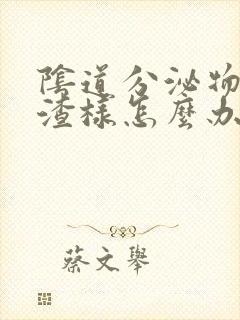 陰道分泌物
渣樣怎麼办
蔡文舉